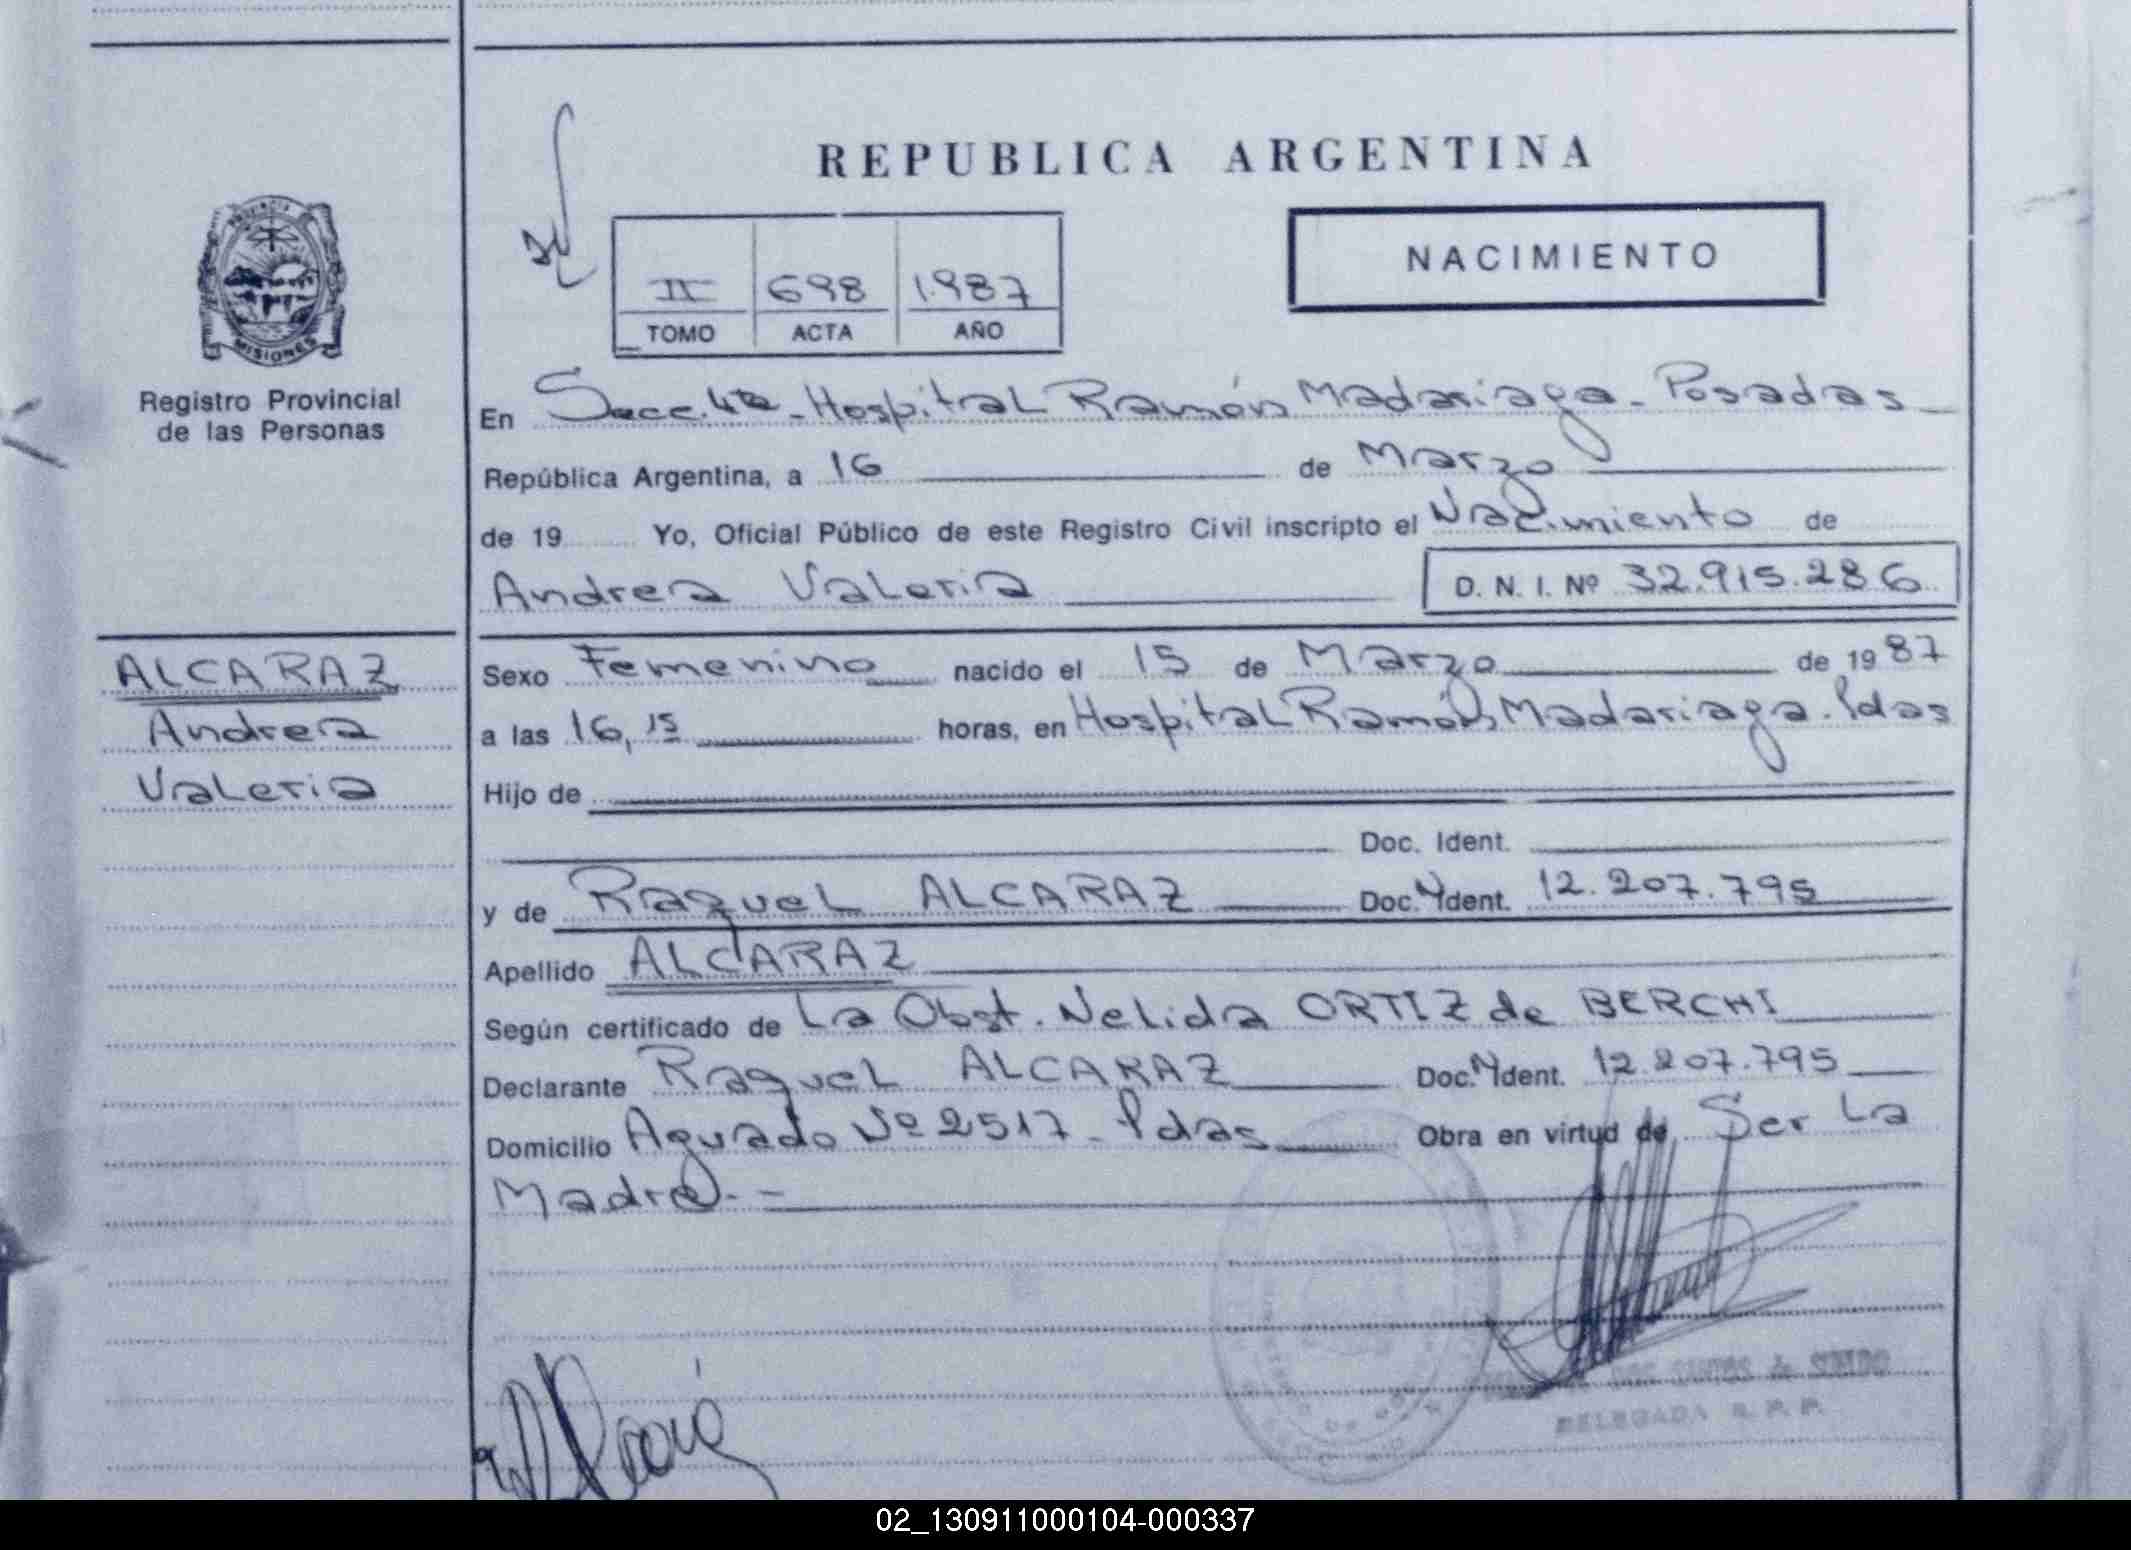 REPUBLICA ARGENTINA
NACIMIENTO
II 698 1.987
TOMO ACTA AÑO
MISIONES
Registro Provincial
de las Personas
En Secc. 4ta - Hospital Ramón Madariaga - Posadas
República Argentina, a 16 de Marzo
de 19 Yo, Oficial Público de este Registro Civil inscripto el Nacimiento de
Andrea Valeria D. N. I. Nº 32.915.286
ALCARAZ
Andrea
Valeria
Sexo Femenino nacido el 15 de Marzo de 19 87
a las 16,15 horas, en Hospital Ramón Madariaga. Pdas
Hijo de
Doc. Ident.
y de Raquel ALCARAZ Doc. Ident. 12.207.795
Apellido ALCARAZ
Según certificado de La Obst. Nelida ORTIZ de BERCHI
Declarante Raquel ALCARAZ Doc. Ident. 12.207.795
Domicilio Aguado Nº 2517 - Pdas Obra en virtud de Ser La
Madre. -
DELEGADA R. P. P.
02_130911000104-000337